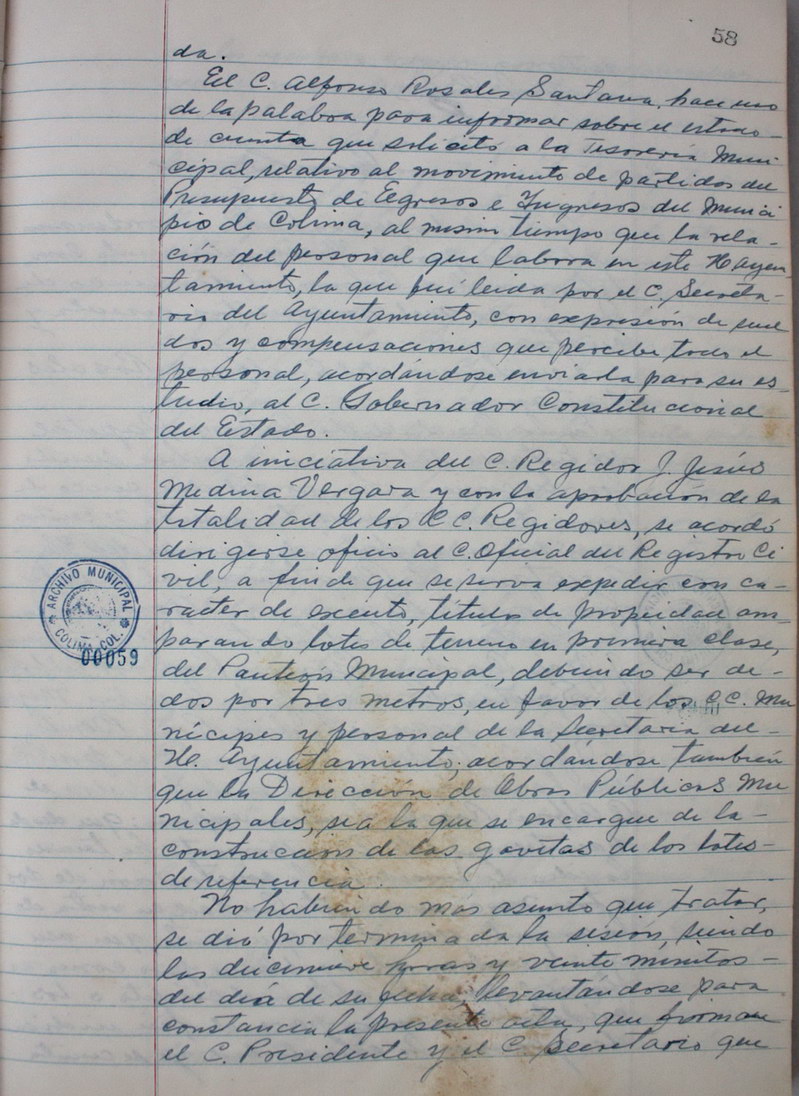 58
da.
El C. Alfonso Rosales Santana, hace uso
de la palabra para informar sobre el estado
de cuenta que solicitó a la Tesorería Muni
cipal, relativo al movimiento de partidas del
Presupuesto de Egresos e Ingresos del Munici
pio de Colima, al mismo tiempo que la rela-
ción del personal que labora en este H. Ayun
tamiento, la que fué leida por el C. Secreta-
rio del Ayuntamiento, con expresión de suel
dos y compensaciones que percibe todo el
personal, acordándose enviarla para su es-
tudio, al C. Gobernador Constitucional
del Estado.
A iniciativa del C. Regidor J. Jesús
Medina Vergara y con la aprobación de la
totalidad de los CC. Regidores, se acordó
dirigirse oficio al C. Oficial del Registro Ci
vil, a fin de que se sirva expedir con ca-
racter de excento, titulos de propiedad am-
parando lotes de terreno en primera clase,
del Panteón Municipal, debiendo ser de-
dos por tres metros, en favor de los CC. Mu
nícipes y personal de la Secretaria del-
H. Ayuntamiento; acordándose también
que la Dirección de Obras Públicas Mu
nicipales, sea la que se encargue de la-
construcción de las gavetas de los lotes-
de referencia.
No habiendo más asunto que tratar,
se dió por terminada la sesión, siendo
las diecinueve horas y veinte minutos-
del día de su fecha, levantándose para
constancia la presente acta, que firman
el C. Presidente y el C. Secretario que
ARCHIVO MUNICIPAL
COLIMA, COL.
00059